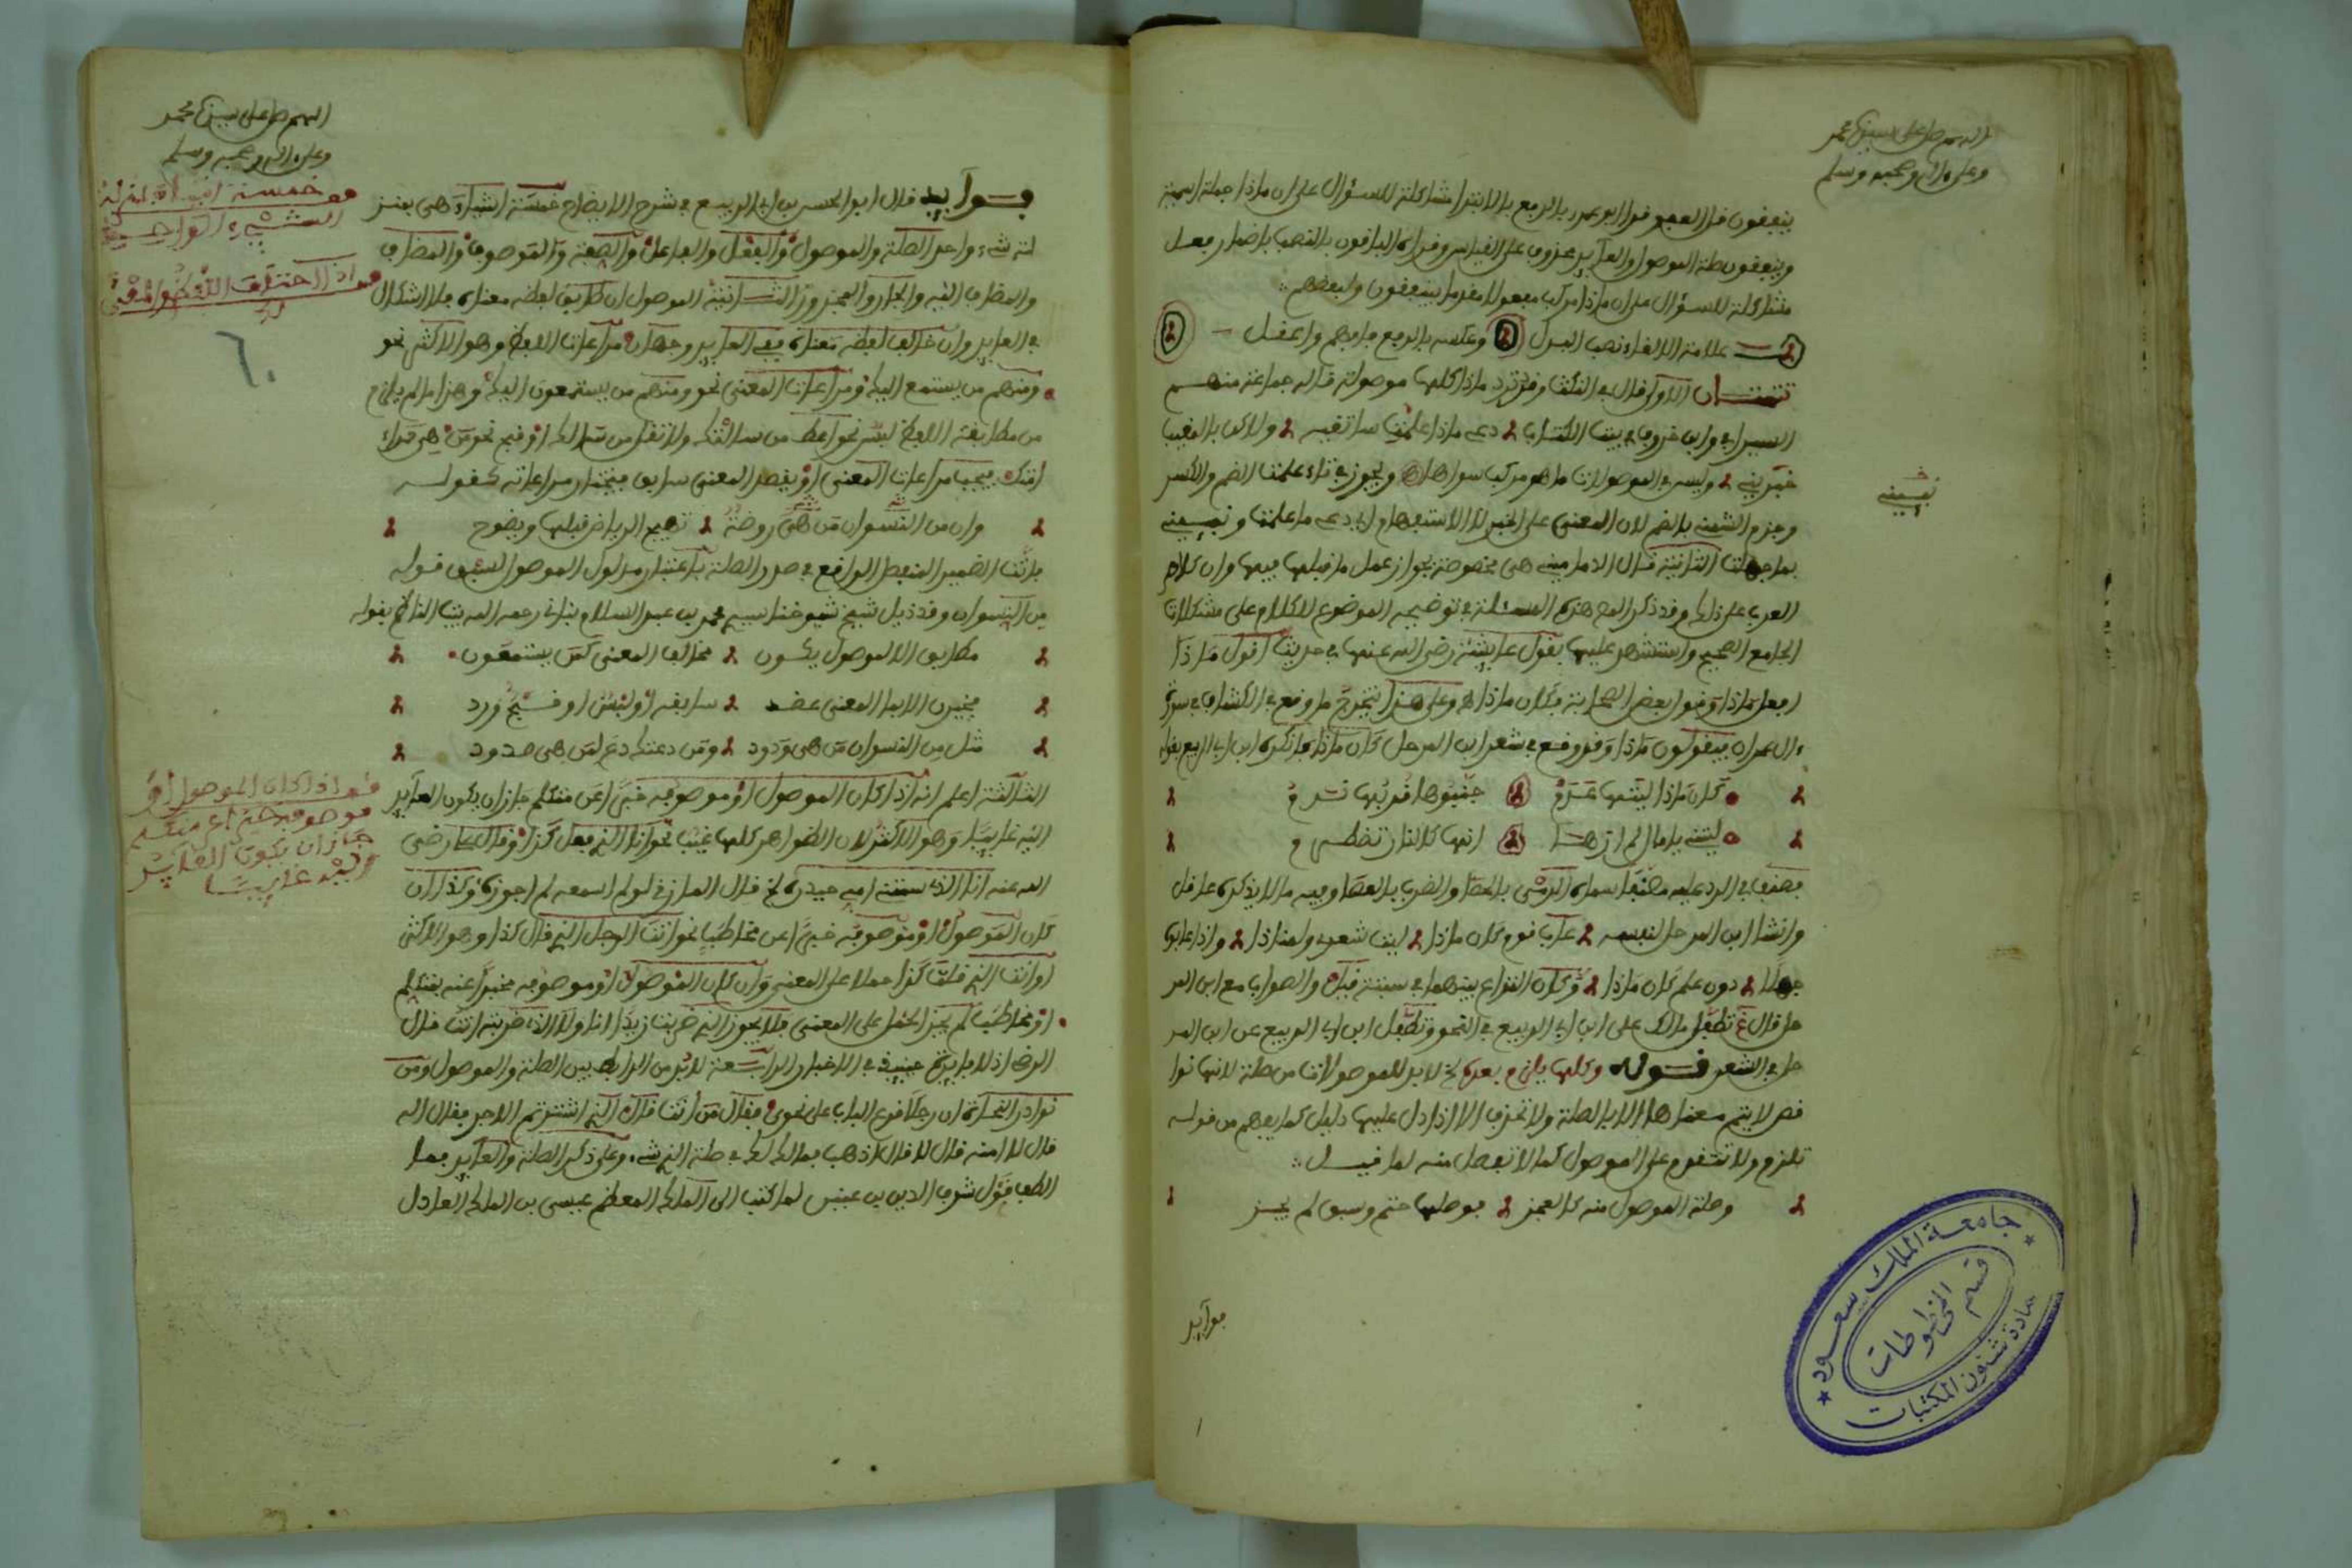 اللهم صل على سيدنا محمد
وعلى ءاله وصحبه وسلم
ينفقون قل العفو قرا ابو عمرو بالرفع بالابتدا مشاكلة للسؤال على ان ماذا جملة اسمية
وينفقون صلة الموصول والعايد محذوف على القياس وقراه الباقون بالنصب باضمار فعل
مشاكلة للسؤال على ان ماذا مركب مفعولا مقدما ينفقون ولبعضهم
علامة الالغاء نصب البدل وعكسه بالرفع فافهم واعقل
تتمتان الاولى قال في النكت وقد ترد ماذا كلها موصولة قاله جماعة منهم
السيرافي وابن خروف في بيت الكتاب دعي ماذا علمت ساتقيه ولاكن بالمغيب
خبريني وليس في الموصولات ما هو مركب سواها ويجوز في تاء علمت الضم والكسر
وجزم الشمني بالضم لان المعنى على الخبر لا الاستفهام اي دعي ما علمت
نبييني
بما جهلت الثانية قال الدماميني هي مخصوصة بجواز عمل ما قبلها فيها وان كلام
العرب على ذلك وقد ذكر المص هذه المسئلة في توضيحه الموضوع للكلام على مشكلات
الجامع الصحيح واستشهد عليها بقول عايشة رضي الله عنها في حديث اقول ماذا
افعل ماذا وقول بعض الصحابة فكان ماذا وعلى هذا يتخرج ما وقع في الكشاف في سورة
ءال عمران فيقولون ماذا وقد وقع في شعر ابن المرحل كان ماذا فانكره ابن ابي الربيع بقوله
كان ماذا ليتها عدم جنبوها قربها ندم
ليتني يا مال لم ارها انها كالنار تضطرم
فصنف في الرد عليه مصنفا سماه الرمي بالحصا والضرب بالعصا وفيه ما لا يذكره عاقل
وانشا ابن المرحل لنفسه عاب قوم كان ماذا ليت شعري لم هاذا واذا عابوه
جهلا دون علم كان ماذا وكان النزاع بينهما في سبتة والصواب مع ابن المر
حل قال تطفل مالك على ابن ابي الربيع في النحو وتطفل ابن ابي الربيع عن ابن المر
حل في الشعر قوله وكلها يلزم بعده لابد للموصولات من صلة لانها نوا
قص لا يتم معناها الا بالصلة ولا تحذف الا اذا دل عليها دليل كما يفهم من قوله
تلزم ولا تتقدم على الموصول كما لا تفصل منه لما قيل
وصلة الموصول منه كالعجز فوصلها حتم وسبق لم يجز
فوايد
اللهم صل على سيدنا محمد
وعلى ءاله وصحبه وسلم
فوايد قال ابو الحسن بن ابي الربيع في شرح الايضاح خمسة اشياء هي بمنز
لة شيء واحد الصلة والموصول والفعل والفاعل والصفة والموصوف والمضاف
والمضاف اليه والجار والمجرور الثانية الموصول ان طابق لفظه معناه فلا اشكال
في العايد وان خالف لفظه معناه ففي العايد وجهان مراعات اللفظ وهو الاكثر نحو
ومنهم من يستمع اليك ومراعات المعنى نحو ومنهم من يستمعون اليك وهذا ما لم يلزم
من مطابقة اللفظ لبس نحو اعط من سالتك ولا تقل من سالك او قبح نحو من هي حمراء
امتك فيجب مراعات المعنى او يعضد المعنى سابق فيختار مراعاته كقوله
وان من النسوان من هي روضة تهيج الرياض قبلها وتصوح
فانث الضمير المنفصل الواقع في صدر الصلة باعتبار مدلول الموصول لسبق قوله
من النسوان وقد ذيل شيخ شيوخنا سيدي محمد بن عبد السلام بناني رحمه الله بيت الناظم بقوله
مطابق الا الموصول يكون مخالف المعنى كمن يستمعون
فخيرن الا بما المعنى عضد سابقه او لبس او قبح ورد
مثل من النسوان من هي ودود ومن دعتك دع لمن هي صدود
الثالثة اعلم انه اذا كان الموصول او موصوفه خبرا عن متكلم جاز ان يكون العايد
اليه غايبا وهو الاكثر لان الظواهر كلها غيب نحو انا الذي فعل كذا وقال علي رضي
الله عنه انا الذي سمتني امي حيدره قال المازني لو لم اسمعه لم اجوزه وكذا ان
كان الموصول او موصوفه خبرا عن مخاطب نحو انت الرجل الذي قال كذا وهو الاكثر
او انت الذي قلت كذا حملا على المعنى وان كان الموصول او موصوفه مخبرا عنه بمتكلم
او مخاطب لم يجز الحمل على المعنى فلا يجوز الذي ضربت زيدا انا ولا الذي ضربت انت قال
الرضي اذ لا فايدة حينئذ في الاخبار الرابعة لابد من الرابط بين الصلة والموصول ومن
نوادر النحاة ان رجلا قرع الباب على نحوي فقال من انت قال الذي اشتريتم الاجر فقال اله
قال لا امنه قال لا قال اذهب فما لك في صلة الذي شيء وعلى ذكر الصلة والعايد فما
الطف قول شرف الدين بن عنين لما كتب الى الملك المعظم عيسى بن الملك العادل
خمسة اشياء بمنزلة
الشيء الواحد
قف اذا كان الموصول او
موصوفه خبرا عن متكلم
جاز ان يكون العايد
اليه غايبا
٦٠
جامعة الملك سعود
قسم المخطوطات
عمادة شئون المكتبات